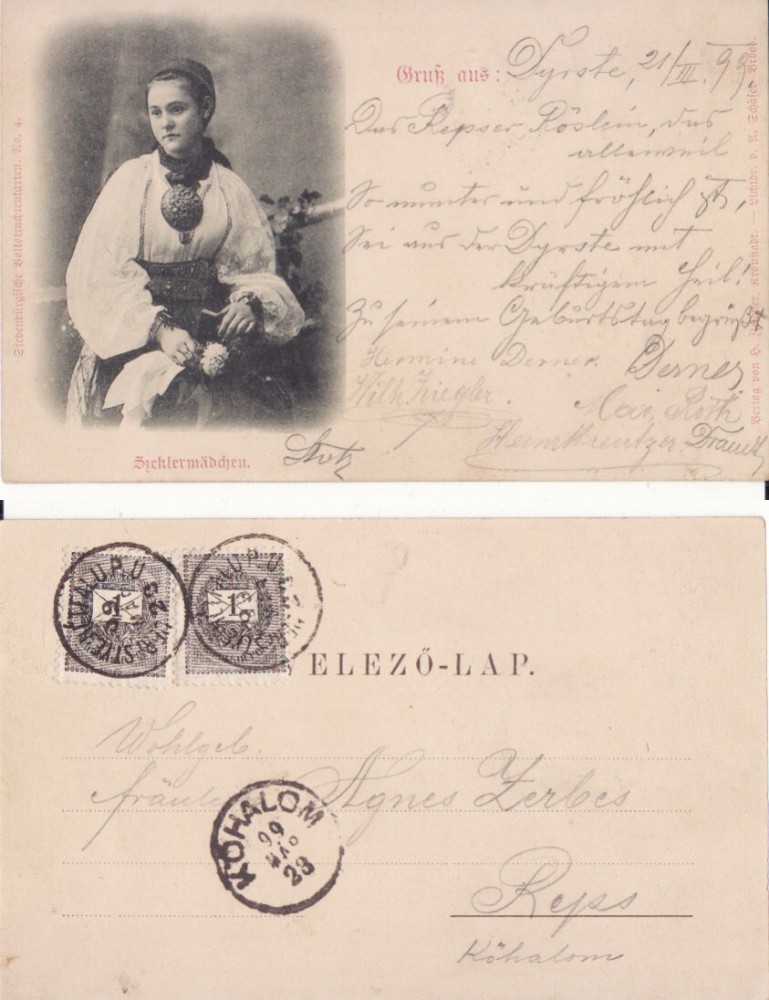 Siebenbürgische Volkstrachtenkarten: No. 4.
Gruß aus: Dyrste, 21/III. 99.
Das Repser Röslein, das
allerweil
So munter und fröhlich ist,
Sei aus der Dyrste mit
kräftigem Heil!
Zu seinem Geburtstag begrüßt
Hermine Derner. Derner
Wilh Ziegler. Max Roth
Heinr Kreutzer.
Szeklermädchen.
Verlag von H. Kronstadt. — Lichtdr. v. A. Schäfer
ELEZŐ-LAP.
Wohlgeb.
Agnes Zerbes
KŐHALOM
99
MÁR
23
Reps
Kőhalom